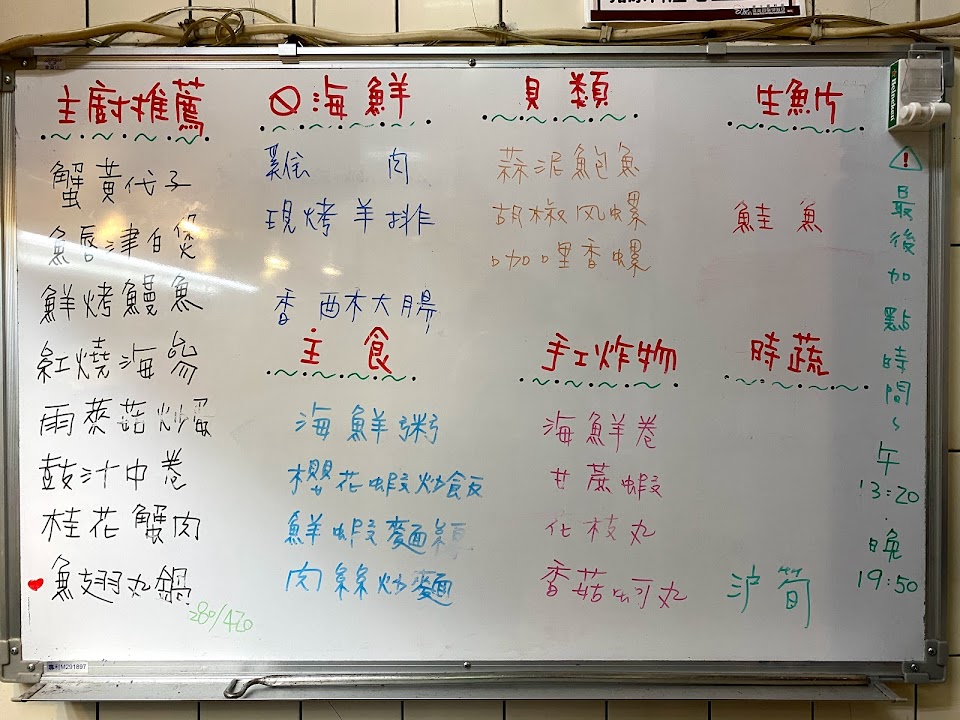 主廚推薦
蟹黃代子
魚唇津白煲
鮮烤鰻魚
紅燒海參
雨來菇炒蛋
豉汁中卷
桂花蟹肉
魚翅丸鍋
280/420
🚫海鮮
雞肉
現烤羊排
香酥大腸
貝類
蒜泥鮑魚
胡椒风螺
咖哩香螺
生魚片
鮭魚
主食
海鮮粥
櫻花蝦炒飯
鮮蝦麵線
肉絲炒麵
手工炸物
海鮮卷
甘蔗蝦
花枝丸
香菇蚵丸
時蔬
沪筍
最後加點時間~
午
13:20
晚
19:50
Heineken
M291897